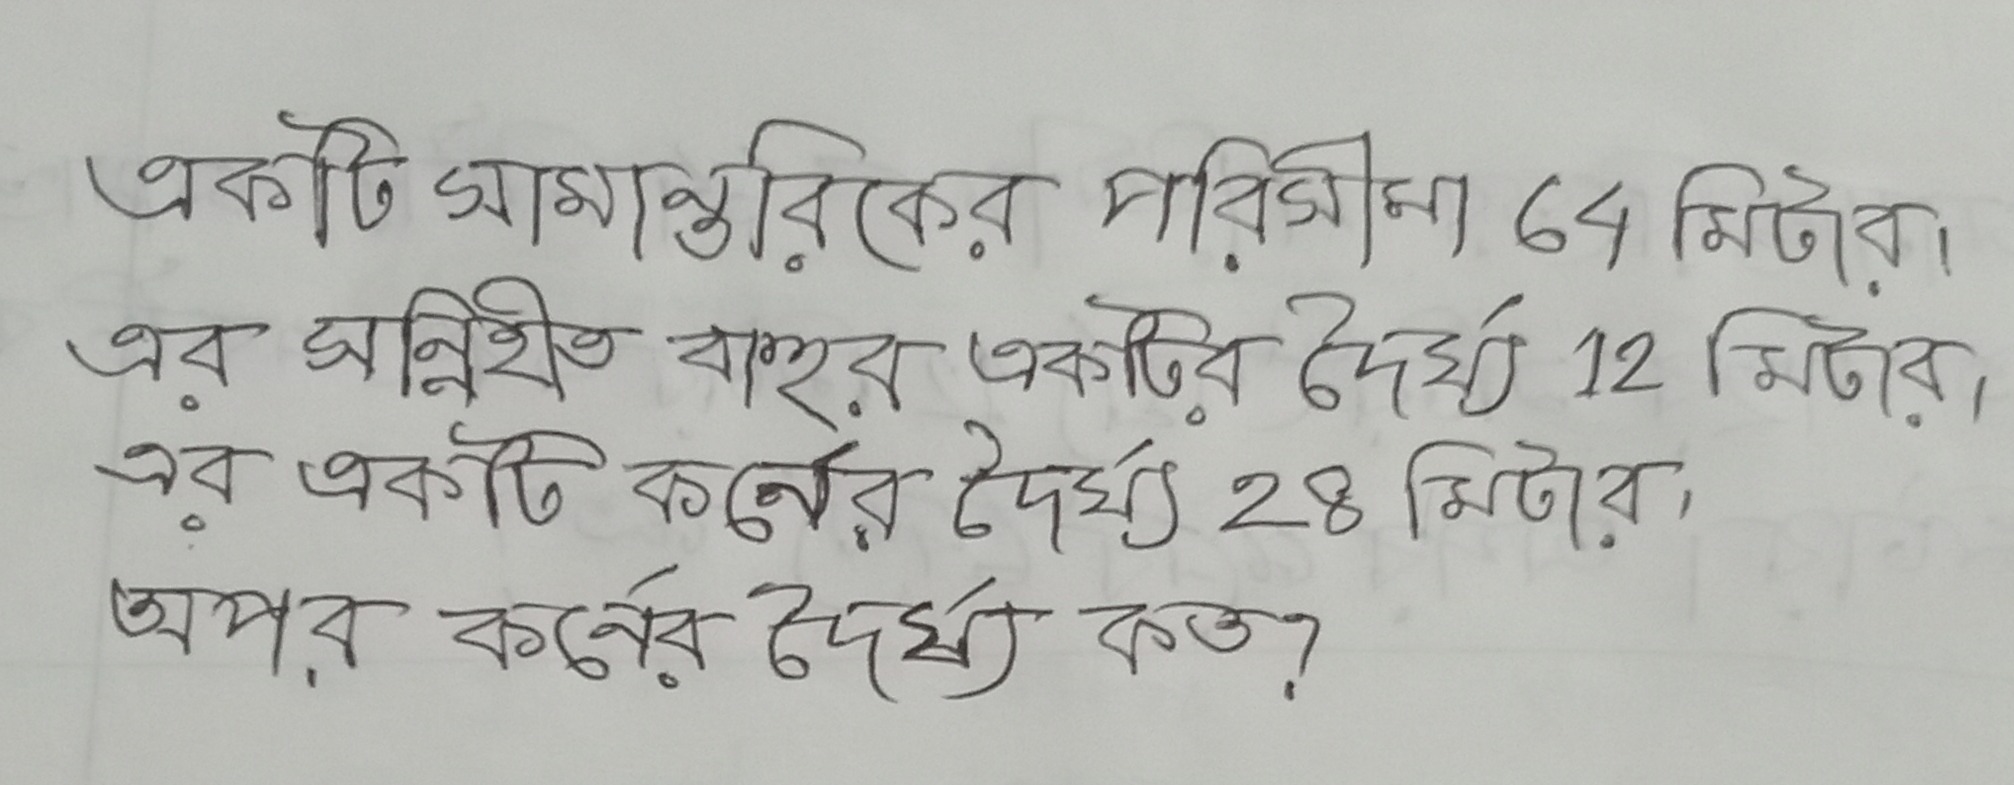 একটি সামান্তরিকের পরিসীমা 64 মিটার।
এর সন্নিহীত বাহুর একটির দৈর্ঘ্য 12 মিটার।
এর একটি কর্নের দৈর্ঘ্য 28 মিটার।
অপর কর্নের দৈর্ঘ্য কত?